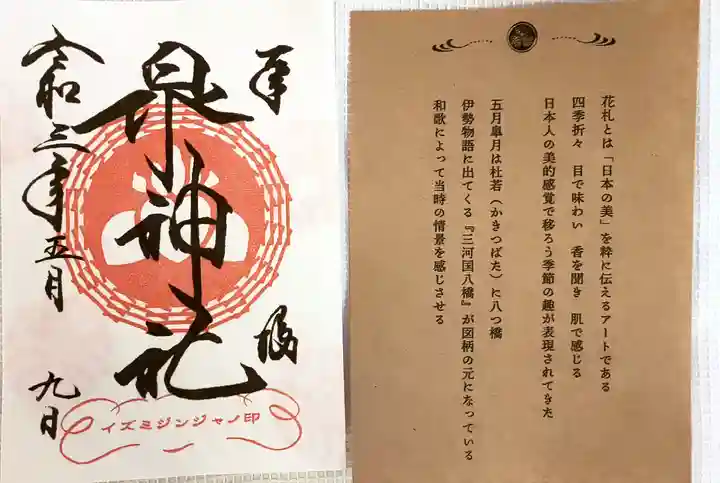 奉
拝
泉神社
令和三年五月
九日
イズミジンジャノ印
花札とは「日本の美」を粋に伝えるアートである
四季折々 目で味わい 香を聞き 肌で感じる
日本人の美的感覚で移ろう季節の趣が表現されてきた
五月皐月は杜若（かきつばた）に八つ橋
伊勢物語に出てくる『三河国八橋』が図柄の元になっている
和歌によって当時の情景を感じさせる